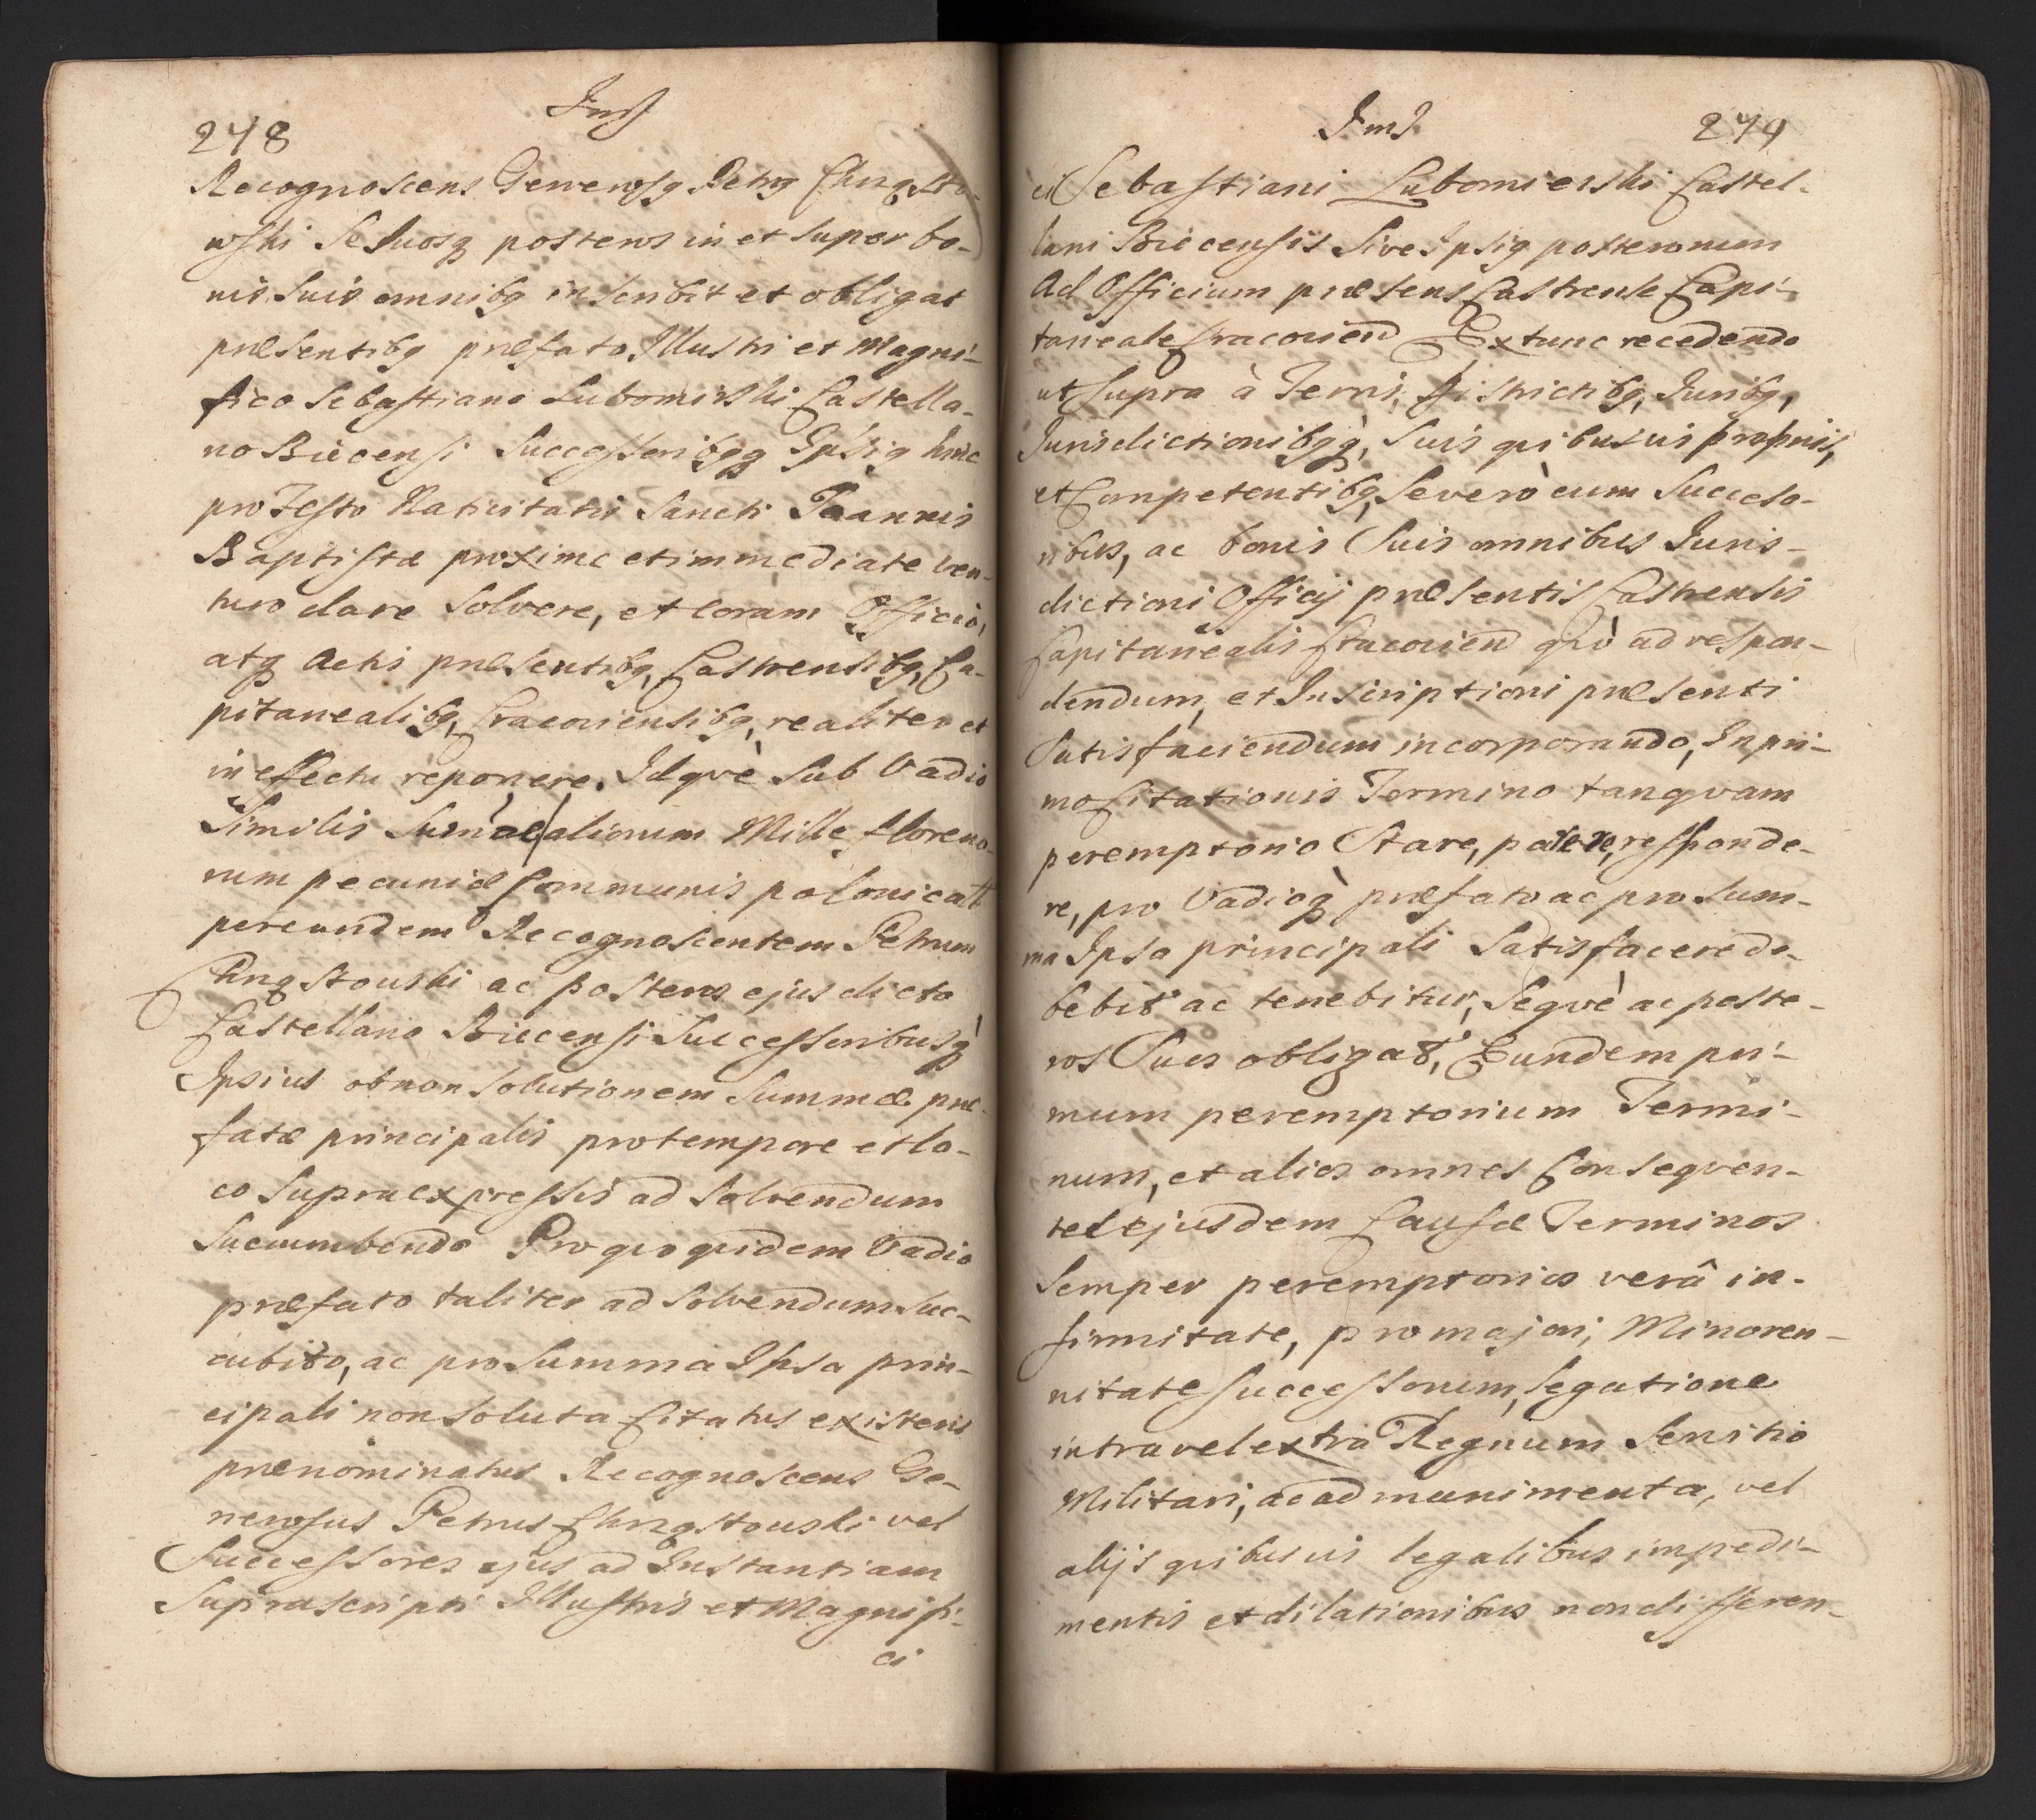 248
Recognoscens Generosq Petrq Chrząsto-
wski Se Suosq posteros in et super bo-
nis Suis omnibq inscribit et obligat
præsentibq præfato Illustri et Magni-
fico Sebastiano Lubomirski Castella-
no Biecensi Successoribqq Ipsiq hinc
pro Festo Nativitatis Sancti Joannis
Baptistæ proxime et immediate ven-
turo dare Solvere, et coram Officio,
atq Actis præsentibq, Castrensibq, Ca-
pitanealibq, Cracoviensibq, realiter et
in effectu reponere. Idqvè Sub Vadio
Similis Sumae aliorum Mille floreno-
rum pecuniæ Communis polonicalt
per eundem Recognoscentem Petrum
Chrząstowski ac posteros ejus dicto
Castellano Biecensi Successoribusq
Ipsius ob non Solutionem Summæ præ-
fatæ principalis pro tempore et lo-
co Supra expressis ad Solvendum
Sucumbendo Pro qvo qvidem Vadio
præfato taliter ad Solvendum Suc-
cubito, ac pro Summa Ipsa prin-
cipali non Soluta Citatus existens
prænominatus Recognoscens Ge-
nerosus Petrus Chrząstowski vel
Successores ejus ad Instantiam
Suprascripti Illustris et Magnifi-
ci
249
ci Sebastiani Lubomierski Castel-
lani Biecensis Sive Ipsiq posterorum
Ad Officium præsens Castrense Capi-
taneale Cracovien Ex tunc recedendo
ut Supra à Terris, Districtibq, Juribq,
Jurisdictionibqq, Suis qvibusvis proprijs,
et Competentibq, Severò cum Succeso-
ribus, ac bonis Suis omnibus Juris-
dictioni Officij præsentis Castrensis
Capitanealis Cracovien qvò ad respon-
dendum, et Inscriptioni præsenti
Satisfaciendum incorporando, In pri-
mo Citationis Termino tanqvam
peremptorio Stare, parere, responde-
re, pro Vadioq præfato ac pro Sum-
ma Ipsa principali Satisfacere de-
bebit ac tenebitur, Seqvè ac poste-
ros Suos obligat, Eundem pri-
mum peremptorium Termi-
num, et alios omnes Conseqven-
tes ejusdem Causæ Terminos
Semper peremptorios verâ in-
firmitate, pro majori, Minoren-
nitate Successorum, legatione
intra vel extra Regnum Servitio
Militari, ac ad munimenta, vel
alijs qvibusvis legalibus impedi-
mentis et dilationibus non differen-